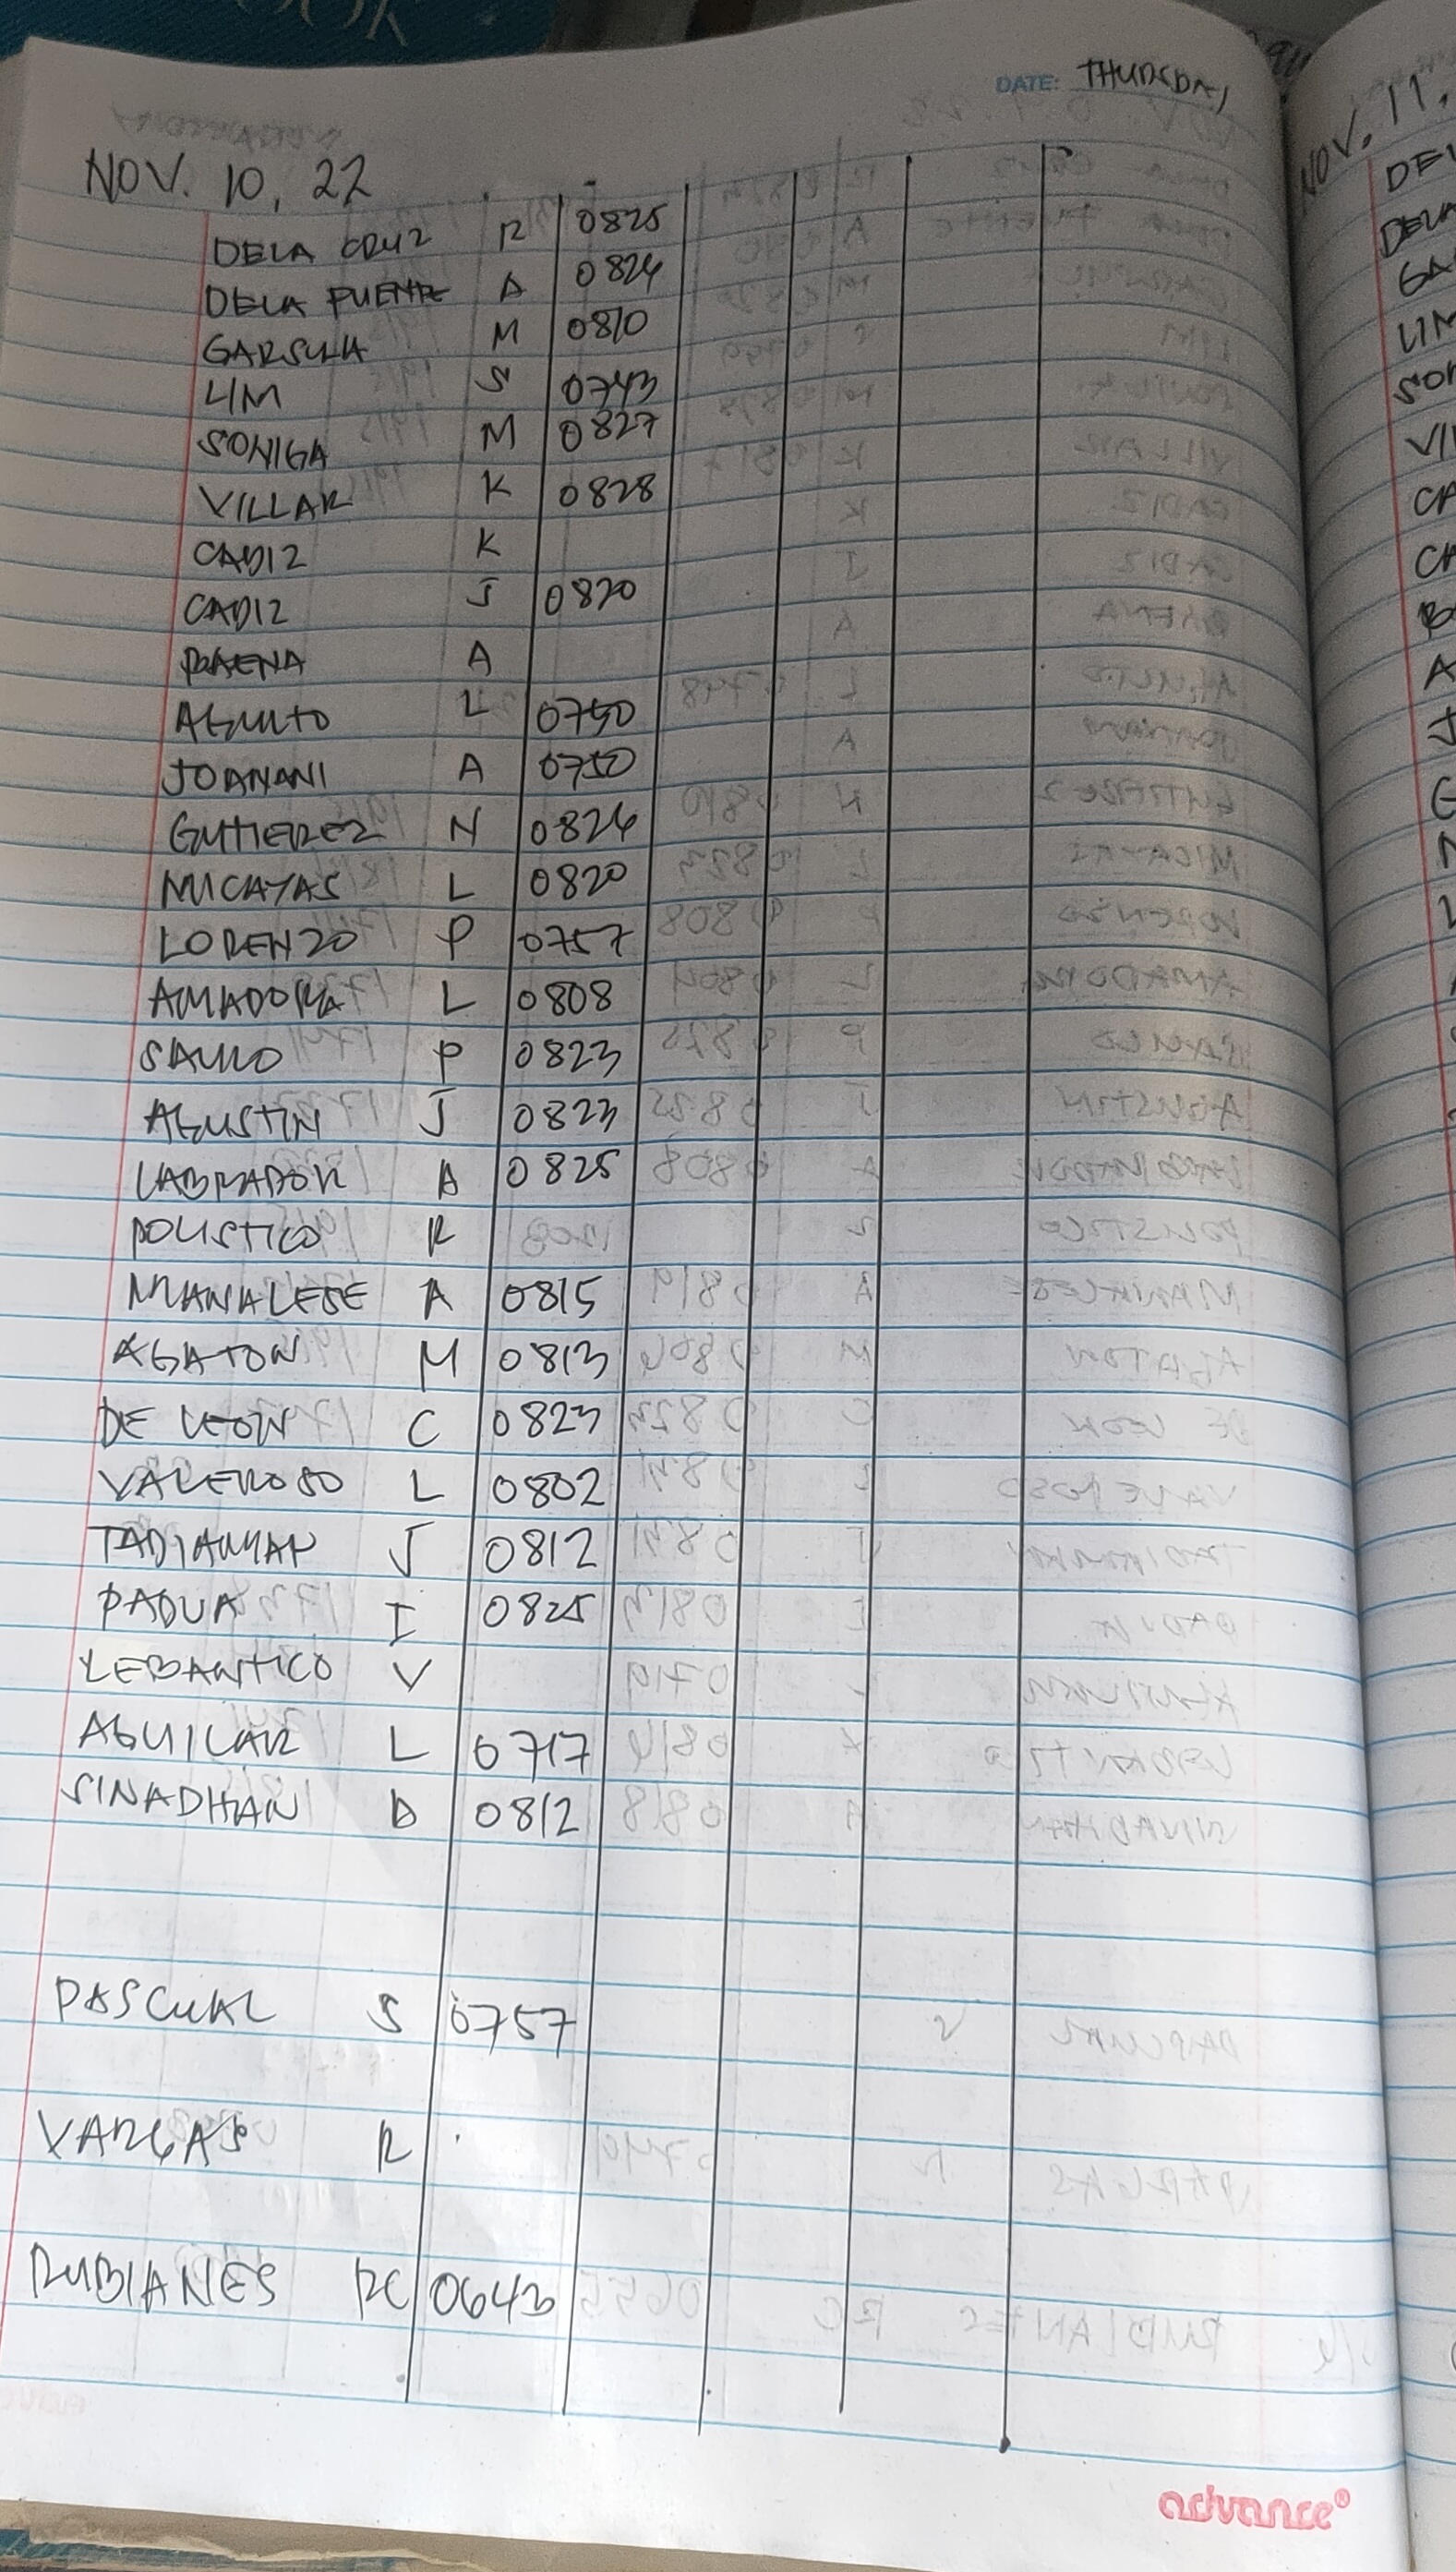 DATE: THURSDAY
NOV. 10, 22
DELA CRUZ R 0825
DELA PUENTE A 0824
GARSULA M 0810
LIM S 0743
SONIGA M 0827
VILLAR K 0828
CADIZ K
CADIZ J 0820
BAENA A
AGULTO L 0750
JOANANI A 0750
GUTIEREZ N 0824
MICAYAS L 0820
LORENZO P 0757
AMADORA L 0808
SAULO P 0823
AGUSTIN J 0823
LABRADOR A 0825
POLISTICO R
MANALESE A 0815
AGATON M 0813
DE LEON C 0823
VALEROSO L 0802
TADIAMAN J 0812
PADUA I 0825
LEBANTICO V
AGUILAR L 0717
SINADHAN D 0812
PASCUAL S 0757
VARGAS R
RUBIANES RC 0643
advance®
NOV. 11,